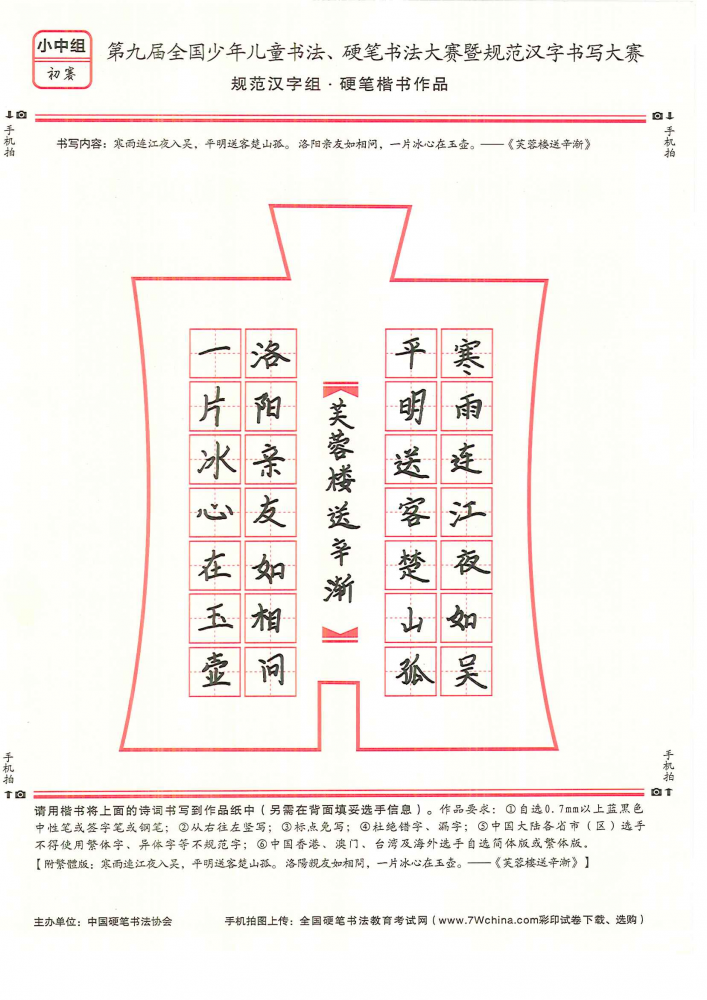 小中组
初赛
第九届全国少年儿童书法、硬笔书法大赛暨规范汉字书写大赛
规范汉字组·硬笔楷书作品
手机拍
手机拍
书写内容：寒雨连江夜入吴，平明送客楚山孤。洛阳亲友如相问，一片冰心在玉壶。——《芙蓉楼送辛渐》
寒雨连江夜如吴
平明送客楚山孤
芙蓉楼送辛渐
洛阳亲友如相问
一片冰心在玉壶
手机拍
手机拍
请用楷书将上面的诗词书写到作品纸中（另需在背面填妥选手信息）。作品要求：①自选0.7mm以上蓝黑色
中性笔或签字笔或钢笔；②从右往左坚写；③标点免写；④杜绝错字、漏字；⑤中国大陆各省市（区）选手
不得使用繁体字、异体字等不规范字；⑥中国香港、澳门、台湾及海外选手自选简体版或繁体版。
【附繁體版：寒雨連江夜入吴，平明送客楚山孤。洛陽親友如相問，一片冰心在玉壺。——《芙蓉楼送辛渐》】
主办单位：中国硬笔书法协会
手机拍图上传：全国硬笔书法教育考试网（www.7Wchina.com彩印试卷下载、选购）